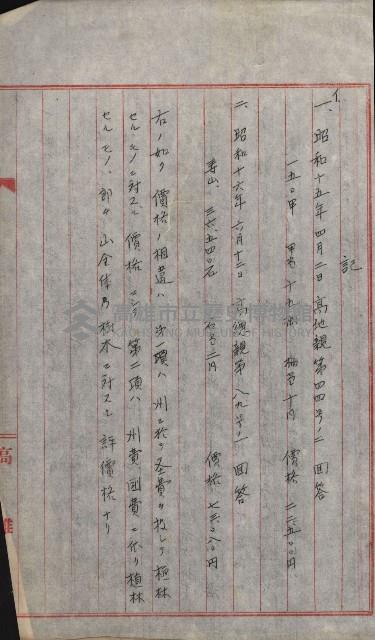 記
一、昭和十五年四月二日高地親第四四号ノ二回答
一五〇甲 甲当十九 石 樹当十円 價格 二二、五〇〇円
二、昭和十六年六月十二日高總親第八九号ノ一回答
寿山、三六、五四〇石 石当二円 價格 七三、〇八〇円
右ノ如ク價格ノ相違ハ第一項ハ州ニ於テ全費ヲ投シテ植林
セルモノニ対スル價格ニシテ第二項ハ州費、国費ニ依リ植林
セルモノ、即チ山全体乃樹木ニ対スル評價格ナリ
高雄市立歷史博物館
KAOHSIUNG MUSEUM OF HISTORY
高雄